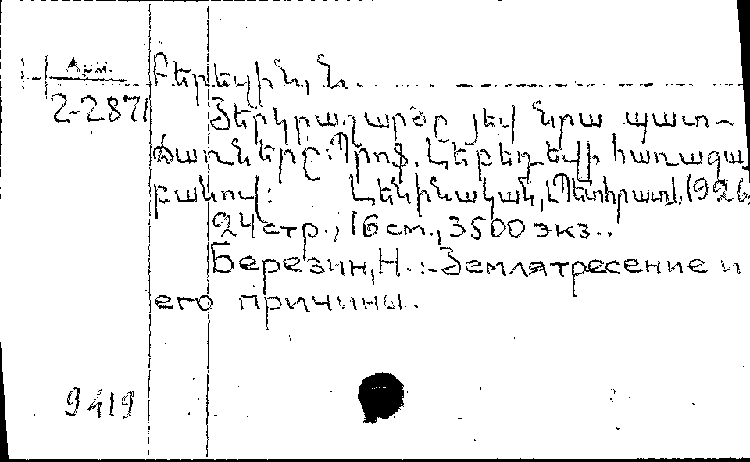 Арм.
2-2871
Բերեզին, Ն.
Յերկրաշարժը յեվ նրա պատ-
ճառները: Պրոֆ. Լեբեդեվի հառաջա-
բանով: Լենինական, Պետհրատ, 1926
24 стр.; 16 см., 3500 экз..
Березин, Н.: Землятресение и
его причины.
9419